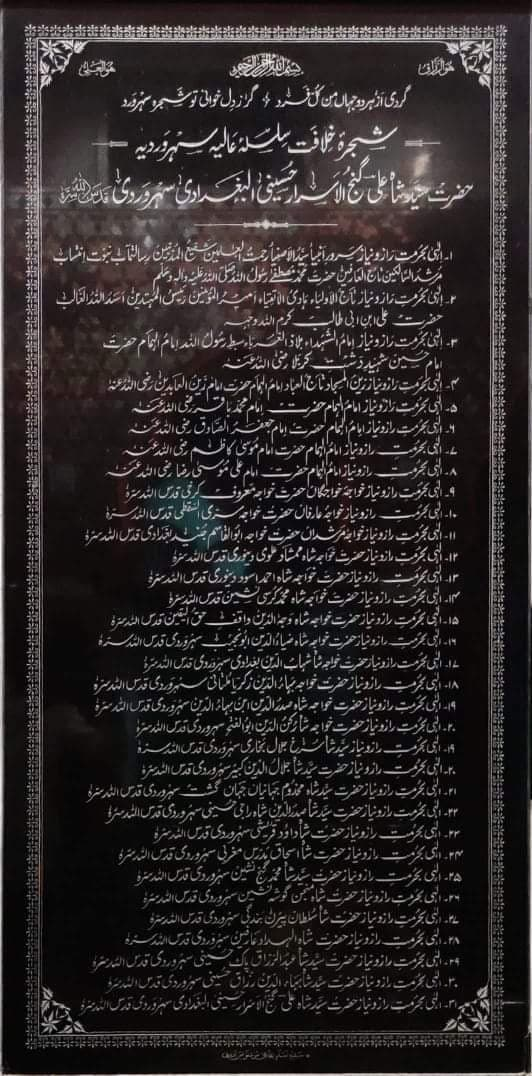 ھو الرزاق
بسم اللہ الرحمن الرحیم
ھو العلی
گردی از ہر دو جہاں من کل فرد گر از دل خوانی تو شجرہ سہرورد
شجرۂ خلافت سلسلۂ عالیہ سہروردیہ
حضرت سید شاہ علی گنج الاسرار حسینی البغدادی سہروردی قدس اللہ سرہٗ
۱۔ الٰہی بحرمت راز و نیاز سرور انبیا سید الاصفیا رحمت العلمین شفیع المذنبین رسالتمآب نبوت انتساب
مرشد السالکین تاج العارفین حضرت محمد مصطفےٰ رسول اللہ صلی اللہ علیہ والہ وسلم
۲۔ الٰہی بحرمت راز و نیاز تاج الاولیاء ہادی الاتقیاء امیر المؤمنین رئیس المہتدین اسد اللہ الغالب
حضرت علی ابن ابی طالب کرم اللہ وجہہ
۳۔ الٰہی بحرمت راز و نیاز امام الشہداء ملاذ الغرباء سبط رسول اللہ امام الہمام حضرت
امام حسین شہید دشت کربلا رضی اللہ عنہ
۴۔ الٰہی بحرمت راز و نیاز زین السجاد تاج العباد امام الہمام حضرت امام زین العابدین رضی اللہ عنہ
۵۔ الٰہی بحرمت راز و نیاز امام الہمام حضرت امام محمد باقر رضی اللہ عنہ
۶۔ الٰہی بحرمت راز و نیاز امام الہمام حضرت امام جعفر الصادق رضی اللہ عنہ
۷۔ الٰہی بحرمت راز و نیاز امام الہمام حضرت امام موسیٰ کاظم رضی اللہ عنہ
۸۔ الٰہی بحرمت راز و نیاز امام الہمام حضرت امام علی موسیٰ رضا رضی اللہ عنہ
۹۔ الٰہی بحرمت راز و نیاز خواجۂ خواجگان حضرت خواجہ معروف کرخی قدس اللہ سرہٗ
۱۰۔ الٰہی بحرمت راز و نیاز خواجۂ عارفان حضرت خواجہ سری السقطی قدس اللہ سرہٗ
۱۱۔ الٰہی بحرمت راز و نیاز خواجۂ مرشداں حضرت خواجہ ابوالقاسم جنید بغدادی قدس اللہ سرہٗ
۱۲۔ الٰہی بحرمت راز و نیاز حضرت خواجہ شاہ ممشاد علوی دینوری قدس اللہ سرہٗ
۱۳۔ الٰہی بحرمت راز و نیاز حضرت خواجہ شاہ احمد اسود دینوری قدس اللہ سرہٗ
۱۴۔ الٰہی بحرمت راز و نیاز حضرت خواجہ شاہ محمد کرسی نشین قدس اللہ سرہٗ
۱۵۔ الٰہی بحرمت راز و نیاز حضرت خواجہ شاہ وجہ الدین واقف حق الیقین قدس اللہ سرہٗ
۱۶۔ الٰہی بحرمت راز و نیاز حضرت خواجہ شاہ ضیاء الدین ابو نجیب سہروردی قدس اللہ سرہٗ
۱۷۔ الٰہی بحرمت راز و نیاز حضرت خواجہ شاہ شہاب الدین بغدادی سہروردی قدس اللہ سرہٗ
۱۸۔ الٰہی بحرمت راز و نیاز حضرت خواجہ بہاء الدین زکریا ملتانی سہروردی قدس اللہ سرہٗ
۱۹۔ الٰہی بحرمت راز و نیاز حضرت خواجہ شاہ صدر الدین ابن بہاء الدین سہروردی قدس اللہ سرہٗ
۲۰۔ الٰہی بحرمت راز و نیاز حضرت خواجہ شاہ رکن الدین ابوالفتح سہروردی قدس اللہ سرہٗ
۱۹۔ الٰہی بحرمت راز و نیاز حضرت سید شاہ سرخ جلال بخاری سہروردی قدس اللہ سرہٗ
۲۰۔ الٰہی بحرمت راز و نیاز حضرت سید شاہ جلال الدین کبیر سہروردی قدس اللہ سرہٗ
۲۱۔ الٰہی بحرمت راز و نیاز حضرت سید شاہ مخدوم جہانیاں جہاں گشت سہروردی قدس اللہ سرہٗ
۲۲۔ الٰہی بحرمت راز و نیاز حضرت سید شاہ صدر الدین شاہ راجی حسینی سہروردی قدس اللہ سرہٗ
۲۳۔ الٰہی بحرمت راز و نیاز حضرت شاہ داؤد قریشی سہروردی قدس اللہ سرہٗ
۲۴۔ الٰہی بحرمت راز و نیاز حضرت شاہ اسحاق مدرس مغربی سہروردی قدس اللہ سرہٗ
۲۵۔ الٰہی بحرمت راز و نیاز حضرت سید شاہ محمد گنج نشین سہروردی قدس اللہ سرہٗ
۲۶۔ الٰہی بحرمت راز و نیاز حضرت شاہ گوشہ نشین سہروردی قدس اللہ سرہٗ
۲۷۔ الٰہی بحرمت راز و نیاز حضرت شاہ سلطان بیرن بندگی سہروردی قدس اللہ سرہٗ
۲۸۔ الٰہی بحرمت راز و نیاز حضرت شاہ الہداد عارفین سہروردی قدس اللہ سرہٗ
۲۹۔ الٰہی بحرمت راز و نیاز حضرت سید شاہ عبد الرزاق پاک حسینی سہروردی قدس اللہ سرہٗ
۳۰۔ الٰہی بحرمت راز و نیاز حضرت سید شاہ بہاء الدین رزاق حسینی سہروردی قدس اللہ سرہٗ
۳۱۔ الٰہی بحرمت راز و نیاز حضرت سید شاہ علی گنج الاسرار حسینی البغدادی سہروردی قدس اللہ سرہٗ